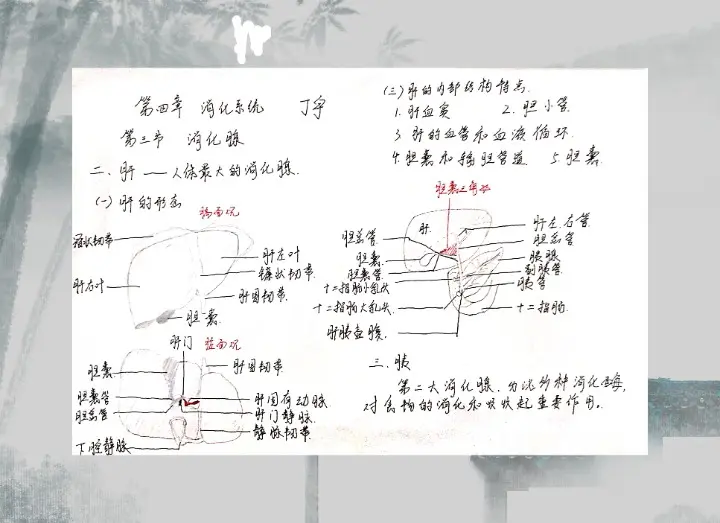 第四章 消化系统 丁宇
第三节 消化腺
二、肝 — 人体最大的消化腺.
(一) 肝的形态
膈面观
冠状韧带
肝左叶
镰状韧带
肝右叶
肝圆韧带.
胆囊.
肝门 脏面观
胆囊
肝圆韧带
胆囊管
胆总管
肝固有动脉
肝门静脉.
静脉韧带.
下腔静脉
(三) 肝的内部结构特点.
1. 肝血窦 2. 胆小管.
3. 肝的血管和血液循环.
4. 胆囊和输胆管道 5. 胆囊.
胆囊三角
肝
胆总管
肝左.右管.
胆总管
胆囊
胰腺
胆囊管
副胰管
十二指肠小乳头
胰管
十二指肠大乳头.
十二指肠.
肝胰壶腹.
三、胰
第二大消化腺.分泌多种消化酶,
对食物的消化和吸收起重要作用。